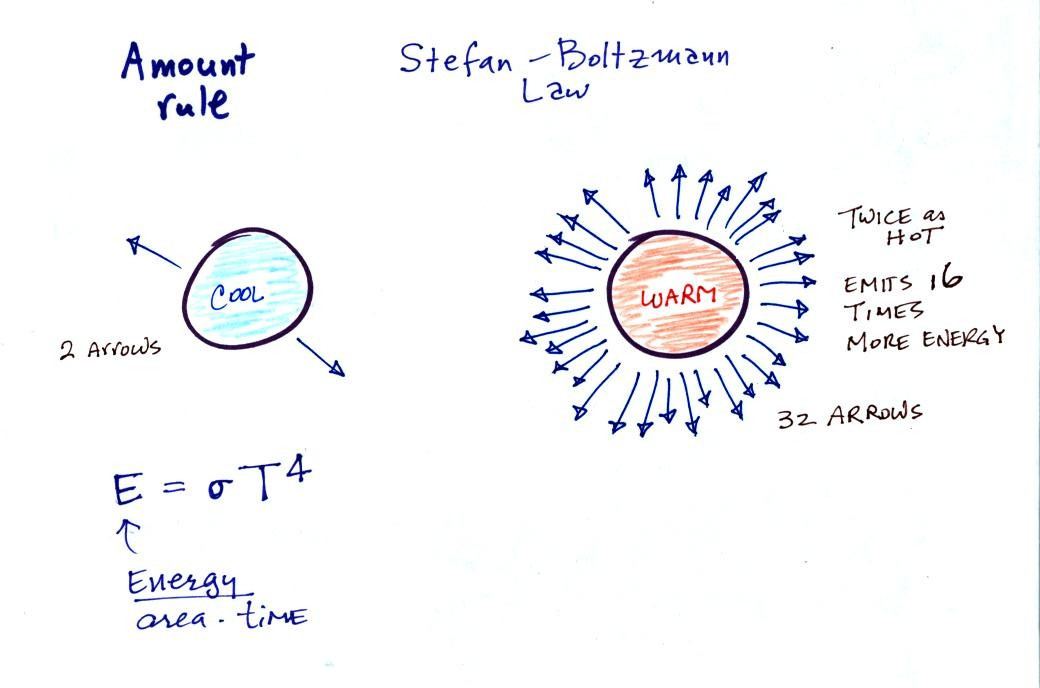 Amount
rule
Stefan-Boltzmann
Law
COOL
2 Arrows
WARM
TWICE as
HOT
EMITS 16
TIMES
MORE ENERGY
32 ARROWS
E = σT⁴
Energy
area · time